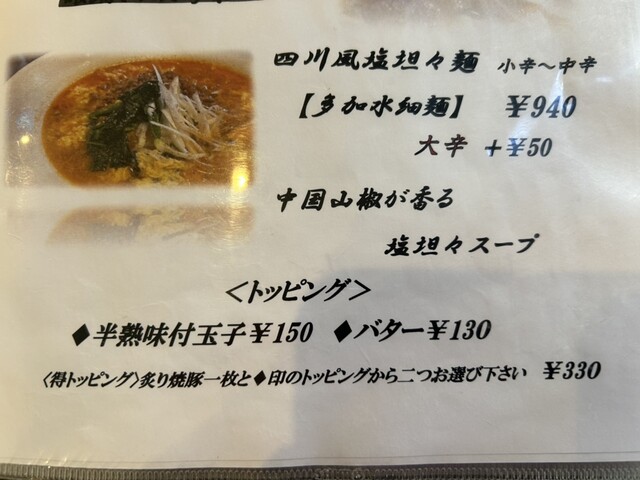 四川風塩坦々麺 小辛～中辛
【多加水細麺】 ￥940
大辛 +￥50
中国山椒が香る
塩坦々スープ
〈トッピング〉
◆半熟味付玉子￥150 ◆バター￥130
〈得トッピング〉炙り焼豚一枚と◆印のトッピングから二つお選び下さい ￥330